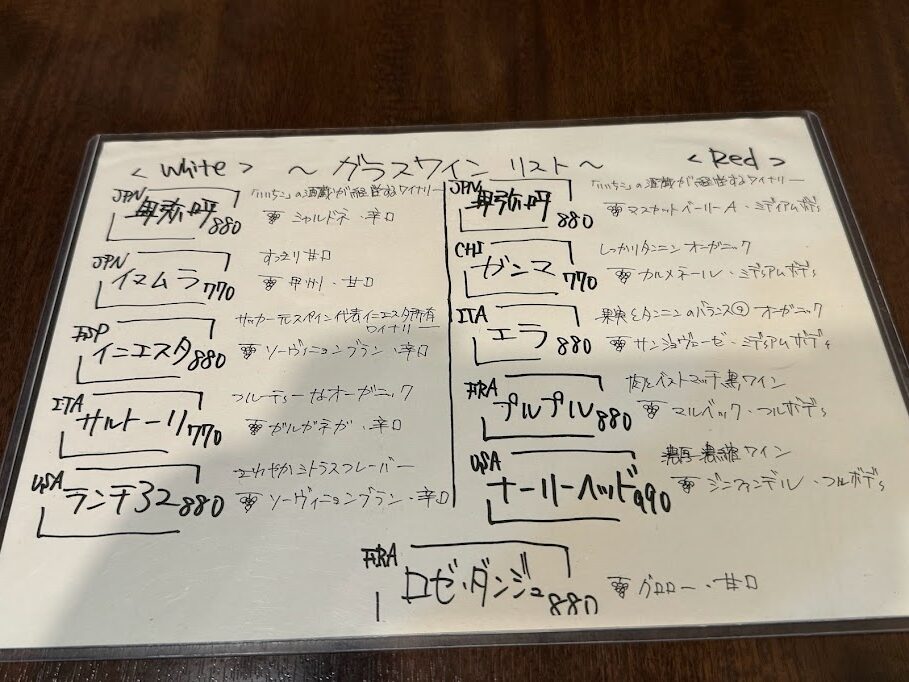 〜 ガラスワイン リスト 〜
< White >
JPN
卑弥呼 880
「いいちこ」の酒蔵が経営するワイナリー
シャルドネ・辛口
JPN
イマムラ 770
すっきり甘口
甲州・甘口
ESP
イニエスタ 880
サッカー元スペイン代表イニエスタ所有
ワイナリー
ソーヴィニョンブラン・辛口
ITA
サルトーリ 770
フルーティーなオーガニック
ガルガネガ・辛口
USA
ランチ32 880
さわやかシトラスフレーバー
ソーヴィニョンブラン・辛口
< Red >
JPN
卑弥呼 880
「いいちこ」の酒蔵が経営するワイナリー
マスカットベーリーA・ミディアムボディ
CHI
ガンマ 770
しっかりタンニン オーガニック
カルメネール・ミディアムボディ
ITA
エラ 880
果実とタンニンのバランス オーガニック
サンジョヴェーゼ・ミディアムボディ
FRA
プルプル 880
肉とベストマッチ黒ワイン
マルベック・フルボディ
USA
ナーリーヘッド 990
濃厚 濃縮 ワイン
ジンファンデル・フルボディ
FRA
ロゼ・ダンジュ 880
グロロー・甘口